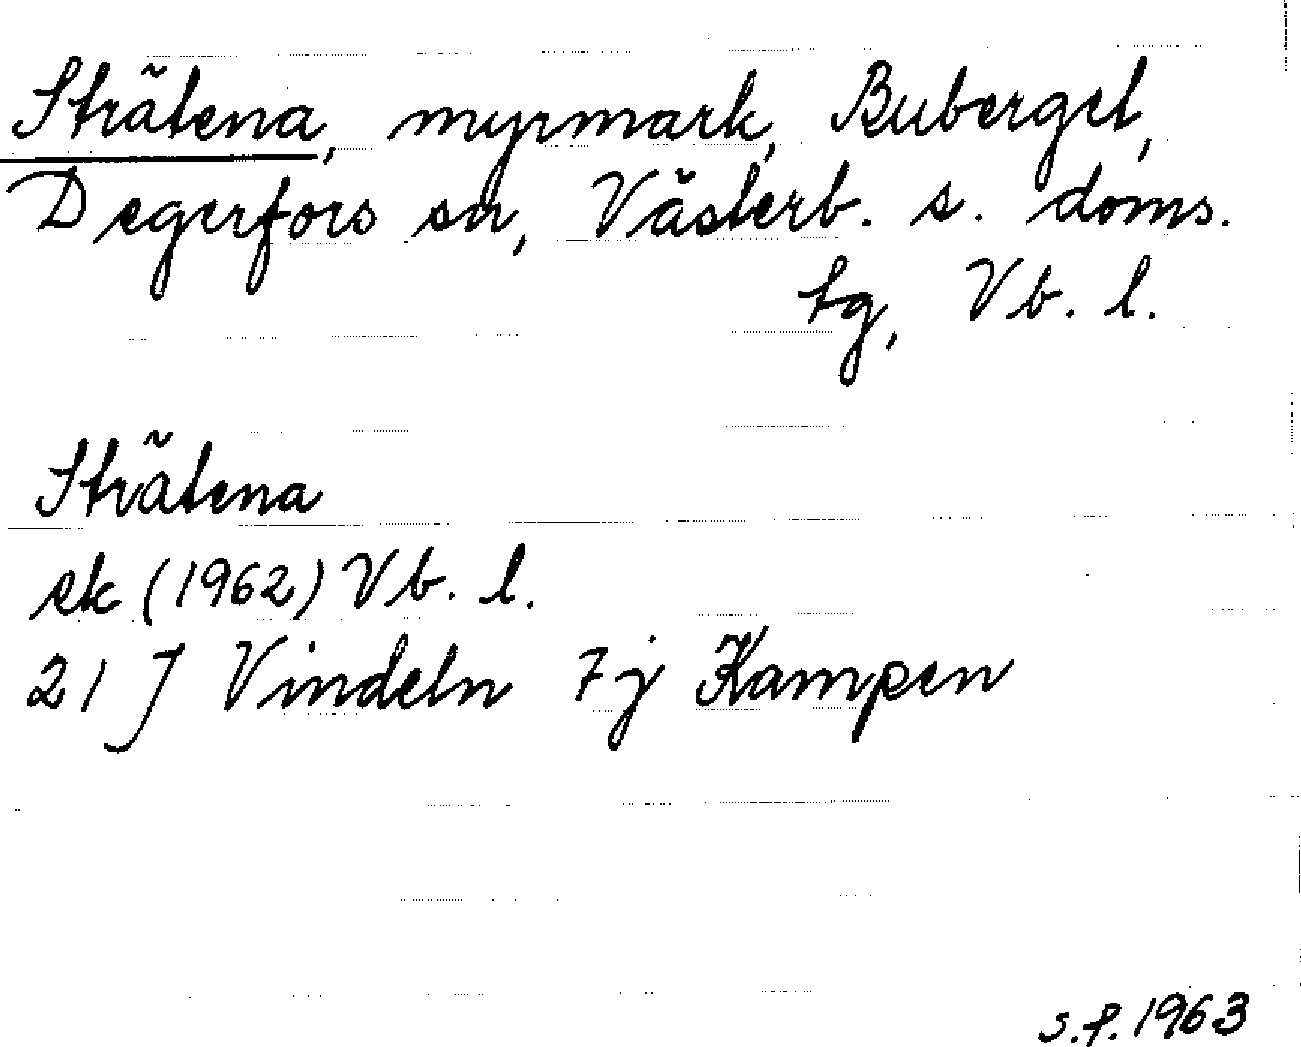 Strätena, myrmark, Buberget,
Degerfors sn, Västerb. s. doms.
tg, Vb. l.
Strätena
ek (1962) Vb. l.
21 J Vindeln 7j Kampen
s.f. 1963